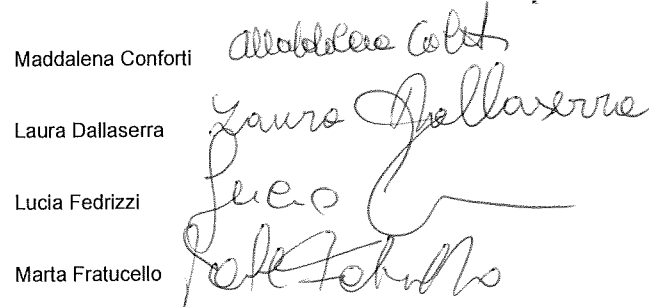 Maddalena Conforti Maddalena Conforti
Laura Dallaserra Laura Dallaserra
Lucia Fedrizzi Lucia
Marta Fratucello